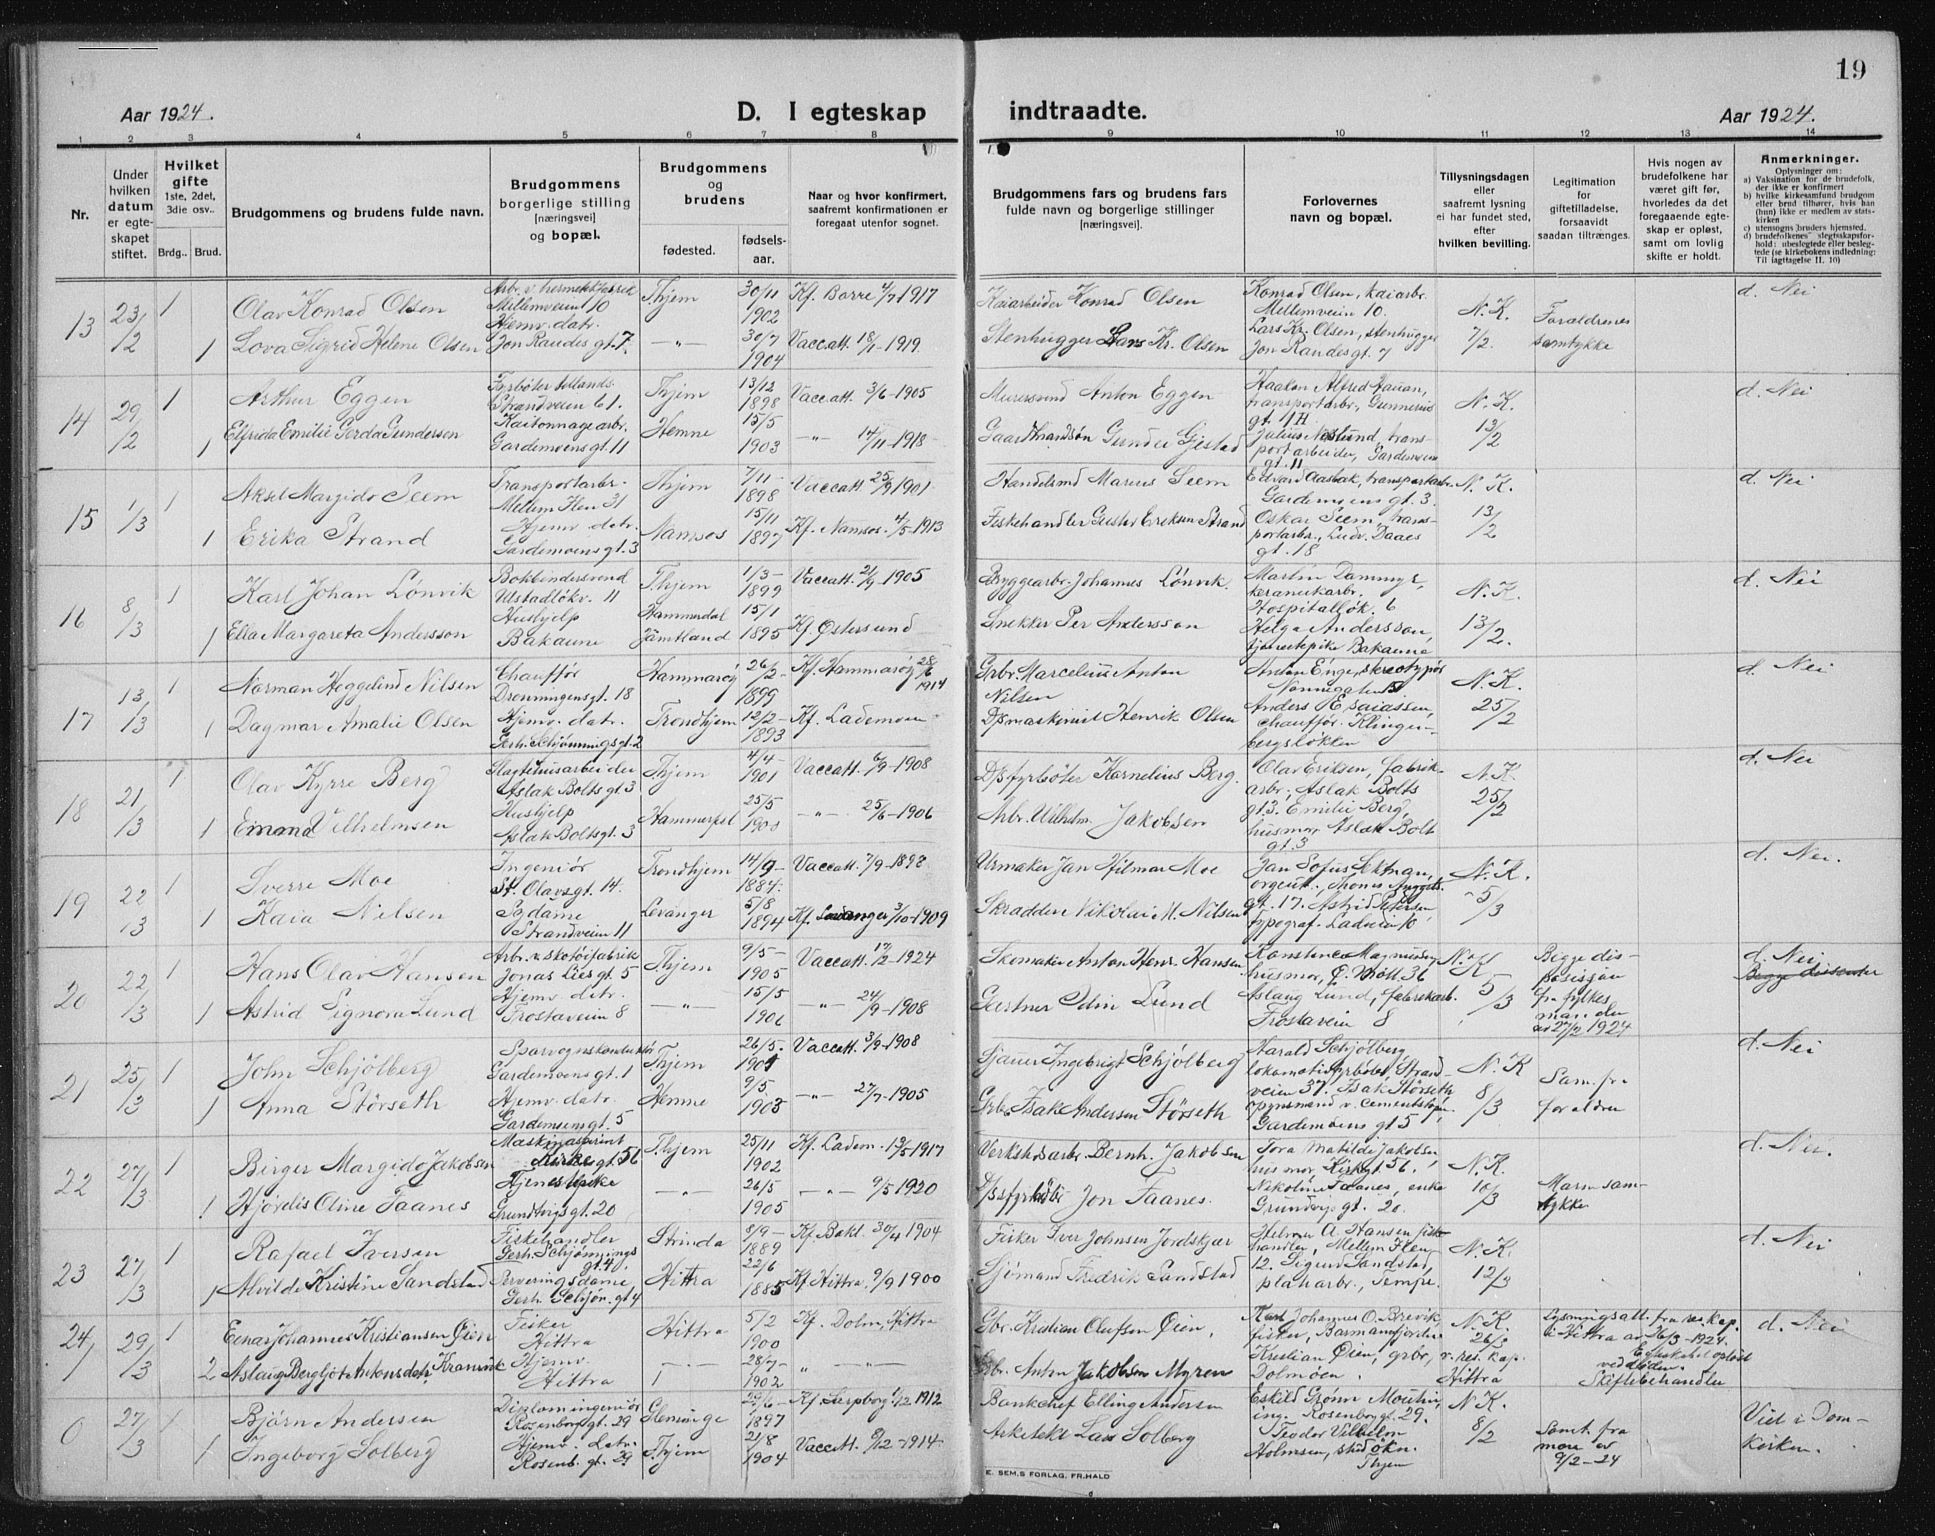 19
Aar 1924.
D. I egteskap
indtraadte.
Aar 1924.
1 2 3 4 5 6 7 8 9 10 11 12 13 14
Nr.
Under hvilken datum er egteskapet stiftet.
Hvilket gifte 1ste, 2det, 3die osv..
Brdg.. Brud.
Brudgommens og brudens fulde navn.
Brudgommens borgerlige stilling [næringsvei] og bopæl.
Brudgommens og brudens
fødested.
fødselsaar.
Naar og hvor konfirmert, saafremt konfirmationen er foregaat utenfor sognet.
Brudgommens fars og brudens fars fulde navn og borgerlige stillinger [næringsvei].
Forlovernes navn og bopæl.
Tillysningsdagen eller saafremt lysning ei har fundet sted, efter hvilken bevilling.
Legitimation for giftetilladelse, forsaavidt saadan tiltrænges.
Hvis nogen av brudefolkene har været gift før, hvorledes da det foregaaende egteskap er opløst, samt om lovlig skifte er holdt.
Anmerkninger.
Oplysninger om:
a) Vaksination for de brudefolk, der ikke er konfirmert
b) hvilke kirkesamfund brudgom eller brud tilhører, hvis han (hun) ikke er medlem av statskirken
c) utensogns bruders hjemsted.
d) brudefolkenes slegtsskapsforhold: ubeslegtede eller beslegtede (se kirkebokens indledning: Til iagttagelse II. 10)
13 23/2 1 Olav Konrad Olsen
Arb. v. hermetikfabrik Mellemveien 10
Thjem 30/11 1902 Kf. Bakke 4/7 1917
Kaiarbeider Konrad Olsen
Konrad Olsen, kaiarb. Mellemveien 10.
N. K. 7/2. Forældrenes samtykke d. Nei
1 Lova Sigrid Helene Olsen
Hjemv. datr. Jon Raudes gt. 7.
—"— 30/7 1904 Vaccatt. 18/1-1919.
Stenhugger Lars Kr. Olsen
Lars Kr. Olsen, stenhugger Jon Raudes gt. 7
14 29/2 1 Arthur Eggen
Fyrbøter Strandveien 61.
Thjem 13/12 1898 Vaccatt. 3/6-1905
Murersvend Anton Eggen
Haakon Alfred Hauan, transportarbr, Gunnerus gt. 11 H
N. K. 13/2 d. Nei
1 Elfrida Emilie Gerda Gundersen
Gardemoens gt. 11
Hemne 15/5 1903 —"— 14/11-1918
Gaardmandsøn Gunder Gjestad
Julius Neslund, transportarbeider, Gardemoens gt. 11
15 1/3 1 Aksel Margido Seem
Transportarbr. Mellem Ilen 31
Thjem 7/11- 1898 Vaccatt 25/9 1901
Handelsmd Marius Seem
Edvard Aasbak, transportarbr. Gardemoens gt. 3.
N. K. 13/2 d. Nei
1 Erika Strand
Hjemv. datr. Gardemoens gt. 3
Namsos 15/11 1897 Kf. Namsos. 4/5-1913
Fiskehandler Gustav Eriksen Strand
Oskar Seem, transportarbr., Ludv. Daaes gt. 18
16 8/3 1 Karl Johan Lønvik
Bokbindersvend Ulstadløkv. 11
Thjem 1/3- 1899 Vaccatt. 21/9-1905
Byggearb. Johannes Lønvik.
Martin Dammyr, keramikarbr. Hospitalløk. 6
N. K. 13/2. d. Nei
1 Ella Margareta Andersson
Hushjelp Bakaune
Hammerdal Jämtland 15/1 1895 Kf. Østersund
Snekker Per Andersson
Helga Andersson, tjenestepike Bakaune
17 13/3 1 Norman Heggelund Nilsen
Chauffør Dronningensgt. 18
Hammarøy 26/2- 1899 Kf. Hammarøy 28/6 1914
Grbr. Marcelius Anton Nilsen
Anton Enge, stereotypør Nonnegaten 15
N. K. 25/2 d. Nei
1 Dagmar Amalie Olsen
Hjemv. datr. Gerh. Schjønnings gt. 2
Trondhjem 12/2- 1893 Kf. Lademoen
D/smaskinist Henrik Olsen
Anders Esaiassen, chauffør. Klingenbergsløkken
18 21/3 1 Olav Kyrre Berg
Slagtehusarbeider Aslak Bolts gt. 3
Thjem 4/4- 1901 Vaccatt. 6/9-1908
D/sfyrbøter Kornelius Berg.
Olav Eriksen, fabrikarbr., Aslak Bolts gt. 3.
N. K. 25/2 d. Nei
1 Emma Vilhelmsen
Hushjelp Aslak Bolts gt. 3
Hammerfest 25/5 1900 —"— 25/6-1906
Arbr. Wilhelm Jakobsen
Emilie Berg, husmor, Aslak Bolt gt. 3
19 22/3 1 Sverre Moe
Ingeniør St. Olavsgt. 14.
Trondhjem 14/9- 1884. Vaccatt. 7/9-1898
Urmaker Jan Hilmar Moe
Jan Sofus
N. K. 5/3 d. Nei.
1 Kaia Nilsen
Sydame Strandveien 11
Levanger 5/8 1894 Kf. Levanger 3/10-1909
Skrædder Nikolai M. Nilsen
gt. 17. Astrid typograf.
20 22/3 1 Hans Olav Hansen
Arbr. v. skotøifabrik Jonas Lies gt. 5
Thjem 9/5- 1905 Vaccatt. 12/2-1924
Skomaker Anton Henr. Hansen
Konstance Magnussen husmor,
N. K 5/3 Begge dispensasjon fra fylkesmanden av 27/2 1924
d. Nei
1 Astrid Signora Lund
Hjemv. datr. Frostaveien 8
—"— 15/5 1906 —"— 24/9-1908
Gartner Odin Lund
Aslaug Lund, fabrikarb. Frostaveien 8
21 25/3 1 John Schjølberg
Sporvognskonduktør Gardemoens gt. 1
Thjem 26/5. 1901 Vaccatt. 3/9-1908
Ingebrigt Schjølberg
Harald Schjølberg lokomotivfyrbøter, Strandveien 37.
N. K 8/3 Sam. fra foraldre d. Nei
1 Anna Størseth
Hjemv. datr. Gardemoens gt. 5
Hemne 9/5. 1903 —"— 27/7-1905
Grbr. Isak Andersen Størseth
Isak Størseth Gardemoens gt 5
22 27/3 1 Birger Margido Jakobsen
Maskinaspirant Kirkegt. 56
Thjem 25/11 1902 Kf. Ladem. 13/5 1917
Verkstedsarbr. Bernh. Jakobsen
Tora Matilde Jakobsen husmor, Kirkegt 56.
N. K. 10/3 Mors samtykke d. Nei.
1 Hjørdis Oline Faanes
Tjenestepike Grundtvigs gt. 20
—"— 26/5 1905 —"— 9/5 1920
D/sfyrbøter Jon Faanes.
Nikoline Faanes, enke Grundtvigs gt. 20.
23 27/3 1 Rafael Iversen
Fiskehandler Gerh. Schjønnings gt. 4.
Strinda 8/9- 1889 Kf. Bakl. 30/4 1904
Fisker Iver Johnsen Jordskjær
A. Hansen fiskehandler, Mellem Ilen 12.
N. K. 12/3 d. Nei
1 Alvilde Kristine Sandstad
Serveringsdame, Gerh. Schjøn. gt 4
Hittra 22/6 1885 Kf. Hittra, 9/9 1900
Sjømand Fredrik Sandstad
Sigurd Sandstad, platearbr., Tempe.
24 29/3 1 Einar Johannes Kristiansen Øien
Fisker Hittra
Hittra 5/2 1900 Kf. Dolm, Hittra
Gbr. Kristian Olufsen Øien.
Karl Johannes O. Brevik, fisker, Barmanfjorden
N. K. 26/3 v. res. kap. Hittra
Lysningsatt. fra res. kap. i Hittra av 26/3-1924.
Egteskabet opløst ved døden. Skiftebehandlet
d. Nei
2 Aslaug Bergljot Antonsdatr. Kramvik
Hjemv. Hittra
—"— 28/7- 1902 —"—
Gbr. Anton Jakobsen Myren
Kristian Øien, grbr, Dolmøen.
0 27/3 1 Bjørn Andersen
Diplomingeniør Rosenborg gt. 29
Glemminge 29/6- 1897 Kf. Sarpsborg 1/12 1912
Bankchef Elling Andersen
Eskild Grønn ing. Rosenborg gt. 29.
N. K. 8/2 Samt. fra mor av 9/2-24
Viet i Domkirken.
1 Ingeborg Solberg
Hjemv. datr. Rosenb. gt. 29
Thjem 21/8 1904 Vaccatt. 8/12-1914
Arkitekt Lars Solberg
Teodor Vilhelm Holmsen, Thjem
E. SEM.S FORLAG, FR.HALD